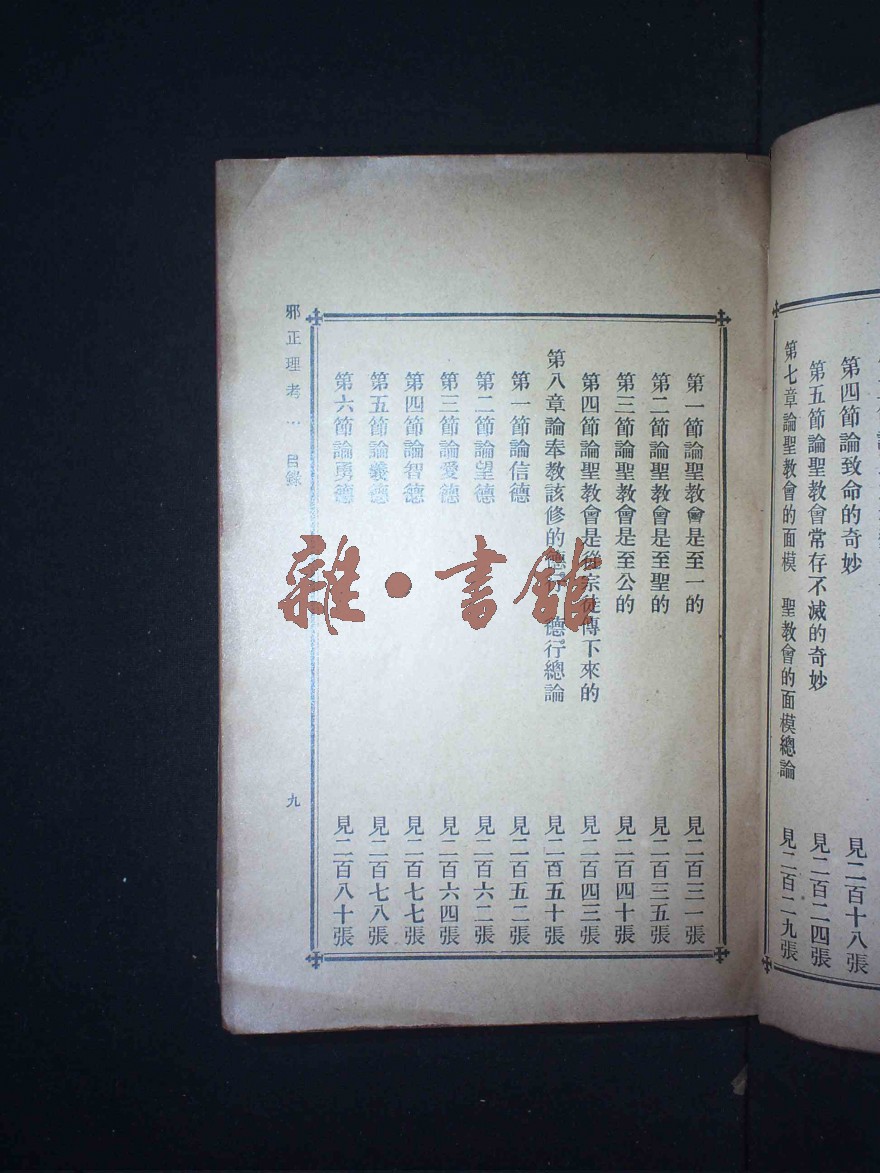 第四節論致命的奇妙 見二百十八張
第五節論聖教會常存不滅的奇妙 見二百二四張
第七章論聖教會的面模 聖教會的面模總論 見二百二九張
第一節論聖教會是至一的 見二百三一張
第二節論聖教會是至聖的 見二百三五張
第三節論聖教會是至公的 見二百四十張
第四節論聖教會是從宗徒傳下來的 見二百四三張
第八章論奉教該修的德行 德行總論 見二百五十張
第一節論信德 見二百五二張
第二節論望德 見二百六二張
第三節論愛德 見二百六四張
第四節論智德 見二百七七張
第五節論義德 見二百七八張
第六節論勇德 見二百八十張
邪正理考 … 目錄 九
雜·書館